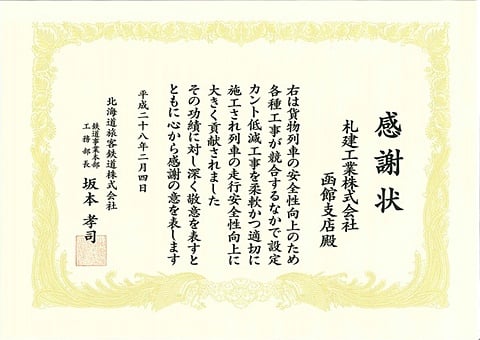 感謝状
札建工業株式会社
函館支店殿
右は貨物列車の安全性向上のため
各種工事が競合するなかで設定
カント低減工事を柔軟かつ適切に
施工され列車の走行安全性向上に
大きく貢献されました
その功績に対し深く敬意を表すと
ともに心から感謝の意を表します
平成二十八年二月四日
北海道旅客鉄道株式会社
鉄道事業本部
工務部長 坂本孝司